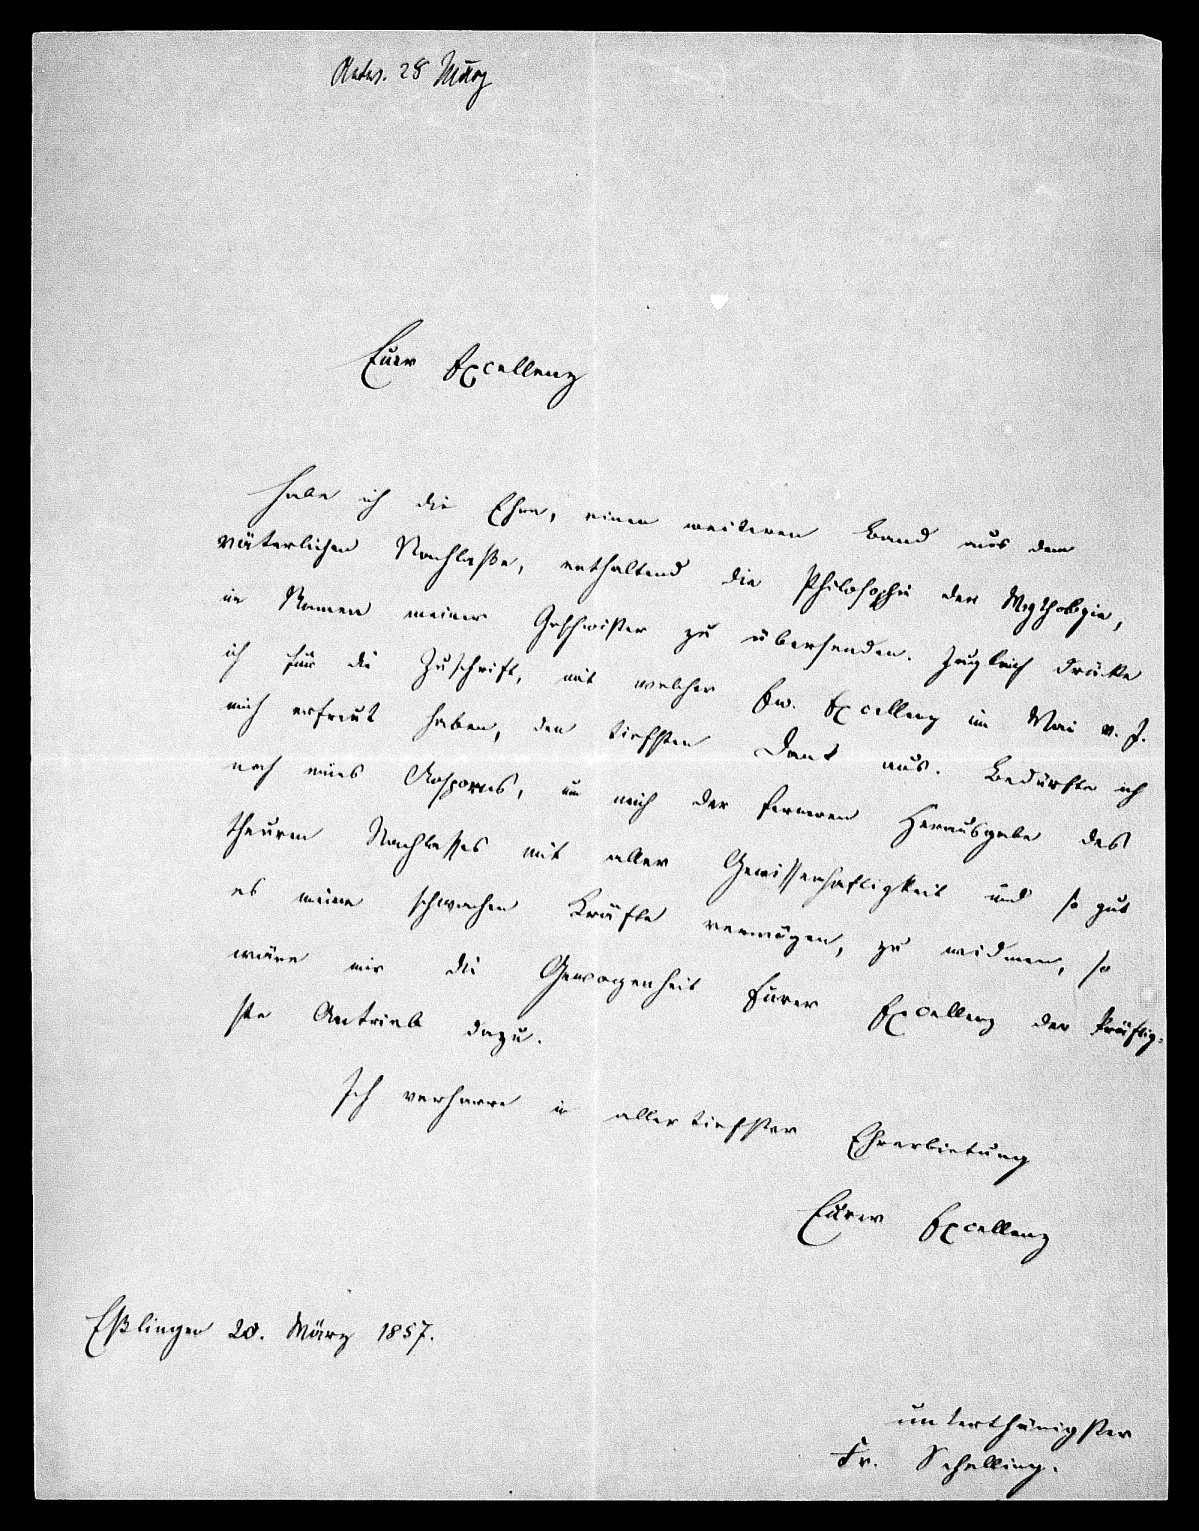 Antw. 28 März
Euer Excellenz
habe ich die Ehre, einen weiteren Band aus dem
väterlichen Nachlaße, enthaltend die Philosophie der Mythologie,
im Namen meiner Geschwister zu übersenden. Zugleich drücke
ich für die Zuschrift, mit welcher Ew. Excellenz im Mai v. J.
mich erfreut haben, den tiefsten Dank aus. Bedürfte ich
noch eines Ansporns, um mich der ferneren Herausgabe des
theuren Nachlasses mit aller Gewissenhaftigkeit und so gut
es meine schwachen Kräfte vermögen, zu widmen, so
wäre mir die Gewogenheit Eurer Excellenz der kräftig-
ste Antrieb dazu.
Ich verharre in allertiefster Ehrerbietung
Eurer Excellenz
Eßlingen 20. März 1857.
unterthänigster
Fr. Schelling.